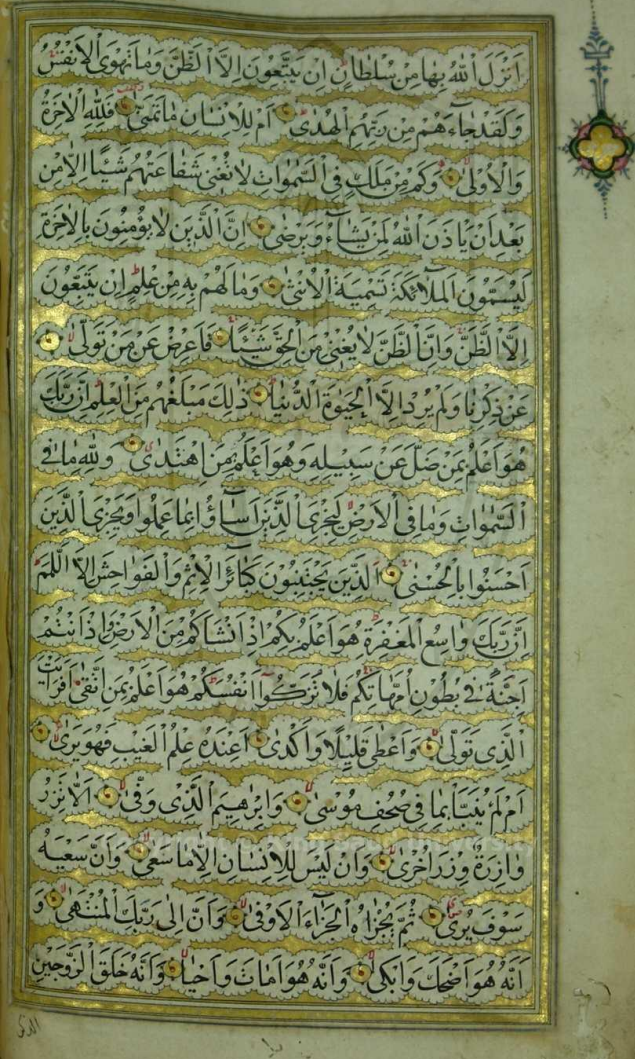 اَنْزَلَ اللّٰهُ بِهَا مِنْ سُلْطَانٍ اِنْ يَتَّبِعُونَ اِلَّا الظَّنَّ وَمَا تَهْوَى الْاَنْفُسُ
وَلَقَدْ جَاءَهُمْ مِنْ رَبِّهِمُ الْهُدٰى اَمْ لِلْاِنْسَانِ مَا تَمَنّٰى فَلِلّٰهِ الْاٰخِرَةُ
وَالْاُولٰى وَكَمْ مِنْ مَلَكٍ فِي السَّمٰوَاتِ لَا تُغْنِى شَفَاعَتُهُمْ شَيْئًا اِلَّا مِنْ
بَعْدِ اَنْ يَاْذَنَ اللّٰهُ لِمَنْ يَشَاءُ وَيَرْضٰى اِنَّ الَّذِينَ لَا يُؤْمِنُونَ بِالْاٰخِرَةِ
لَيُسَمُّونَ الْمَلٰٓئِكَةَ تَسْمِيَةَ الْاُنْثٰى وَمَا لَهُمْ بِهِ مِنْ عِلْمٍ اِنْ يَتَّبِعُونَ
اِلَّا الظَّنَّ وَاِنَّ الظَّنَّ لَا يُغْنِى مِنَ الْحَقِّ شَيْئًا فَاَعْرِضْ عَنْ مَنْ تَوَلّٰى
عَنْ ذِكْرِنَا وَلَمْ يُرِدْ اِلَّا الْحَيٰوةَ الدُّنْيَا ذٰلِكَ مَبْلَغُهُمْ مِنَ الْعِلْمِ اِنَّ رَبَّكَ
هُوَ اَعْلَمُ بِمَنْ ضَلَّ عَنْ سَبِيلِهِ وَهُوَ اَعْلَمُ بِمَنِ اهْتَدٰى وَلِلّٰهِ مَا فِى
السَّمٰوَاتِ وَمَا فِى الْاَرْضِ لِيَجْزِىَ الَّذِينَ اَسَاؤُا بِمَا عَمِلُوا وَيَجْزِىَ الَّذِينَ
اَحْسَنُوا بِالْحُسْنٰى اَلَّذِينَ يَجْتَنِبُونَ كَبَائِرَ الْاِثْمِ وَالْفَوَاحِشَ اِلَّا اللَّمَمَ
اِنَّ رَبَّكَ وَاسِعُ الْمَغْفِرَةِ هُوَ اَعْلَمُ بِكُمْ اِذْ اَنْشَاَكُمْ مِنَ الْاَرْضِ وَاِذْ اَنْتُمْ
اَجِنَّةٌ فِى بُطُونِ اُمَّهَاتِكُمْ فَلَا تُزَكُّوا اَنْفُسَكُمْ هُوَ اَعْلَمُ بِمَنِ اتَّقٰى اَفَرَاَيْتَ
الَّذِى تَوَلّٰى وَاَعْطٰى قَلِيلًا وَاَكْدٰى اَعِنْدَهُ عِلْمُ الْغَيْبِ فَهُوَ يَرٰى
اَمْ لَمْ يُنَبَّاْ بِمَا فِى صُحُفِ مُوسٰى وَاِبْرٰهِيمَ الَّذِى وَفّٰى اَلَّا تَزِرُ
وَازِرَةٌ وِزْرَ اُخْرٰى وَاَنْ لَيْسَ لِلْاِنْسَانِ اِلَّا مَا سَعٰى وَاَنَّ سَعْيَهُ
سَوْفَ يُرٰى ثُمَّ يُجْزٰاهُ الْجَزَاءَ الْاَوْفٰى وَاَنَّ اِلٰى رَبِّكَ الْمُنْتَهٰى وَ
اَنَّهُ هُوَ اَضْحَكَ وَاَبْكٰى وَاَنَّهُ هُوَ اَمَاتَ وَاَحْيَا وَاَنَّهُ خَلَقَ الزَّوْجَيْنِ